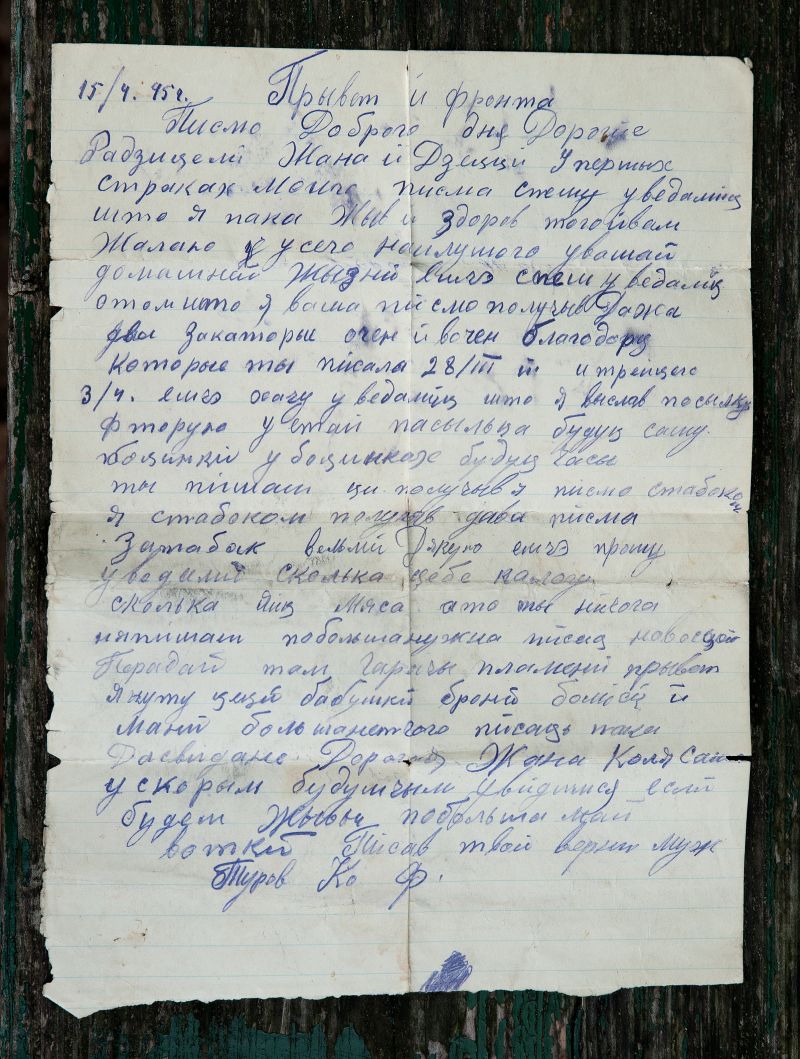 15/4. 45г. Прывет й фронта
Писмо Доброго дня Дорогие
Радзицелй Жана й Дзецци у першых
страках Моиго писма спешу уведаміц
што я пака Жыв и здоров тогойвам
Жалаю усего наилушого увашай
домашнай Жызнй ешчэ спешу уведаміц
отом што я ваша пісмо получыв Дажа
два закаторые очен й вочен благодару
которые ты пісала 28/III й и трецего
3/4. ешчэ хачу уведаміц што я выслав посылку
фторую у етай пасылца будуц
боцинкй у боцинках будуц часы
ты пішаш ци получыв я писмо стабоком
я стабоком получыв два пісма
Затабак вельмй Дякую ешчэ прошу
уведаміц сколька цебе налогу
сколька яиц мяса ато ты ничога
няпішаш побольшанужна пісац новосцей
Перадай там Гарачы пламенй прывет
бабушкй бронй й
Манй большанечого пісаць пака
Досвідане Дорогая Жана Коля
у скорым будушчым свідимся еслй
будем Жывы побольша
воткй Пісав твой верны муж
Туров Ко Ф.